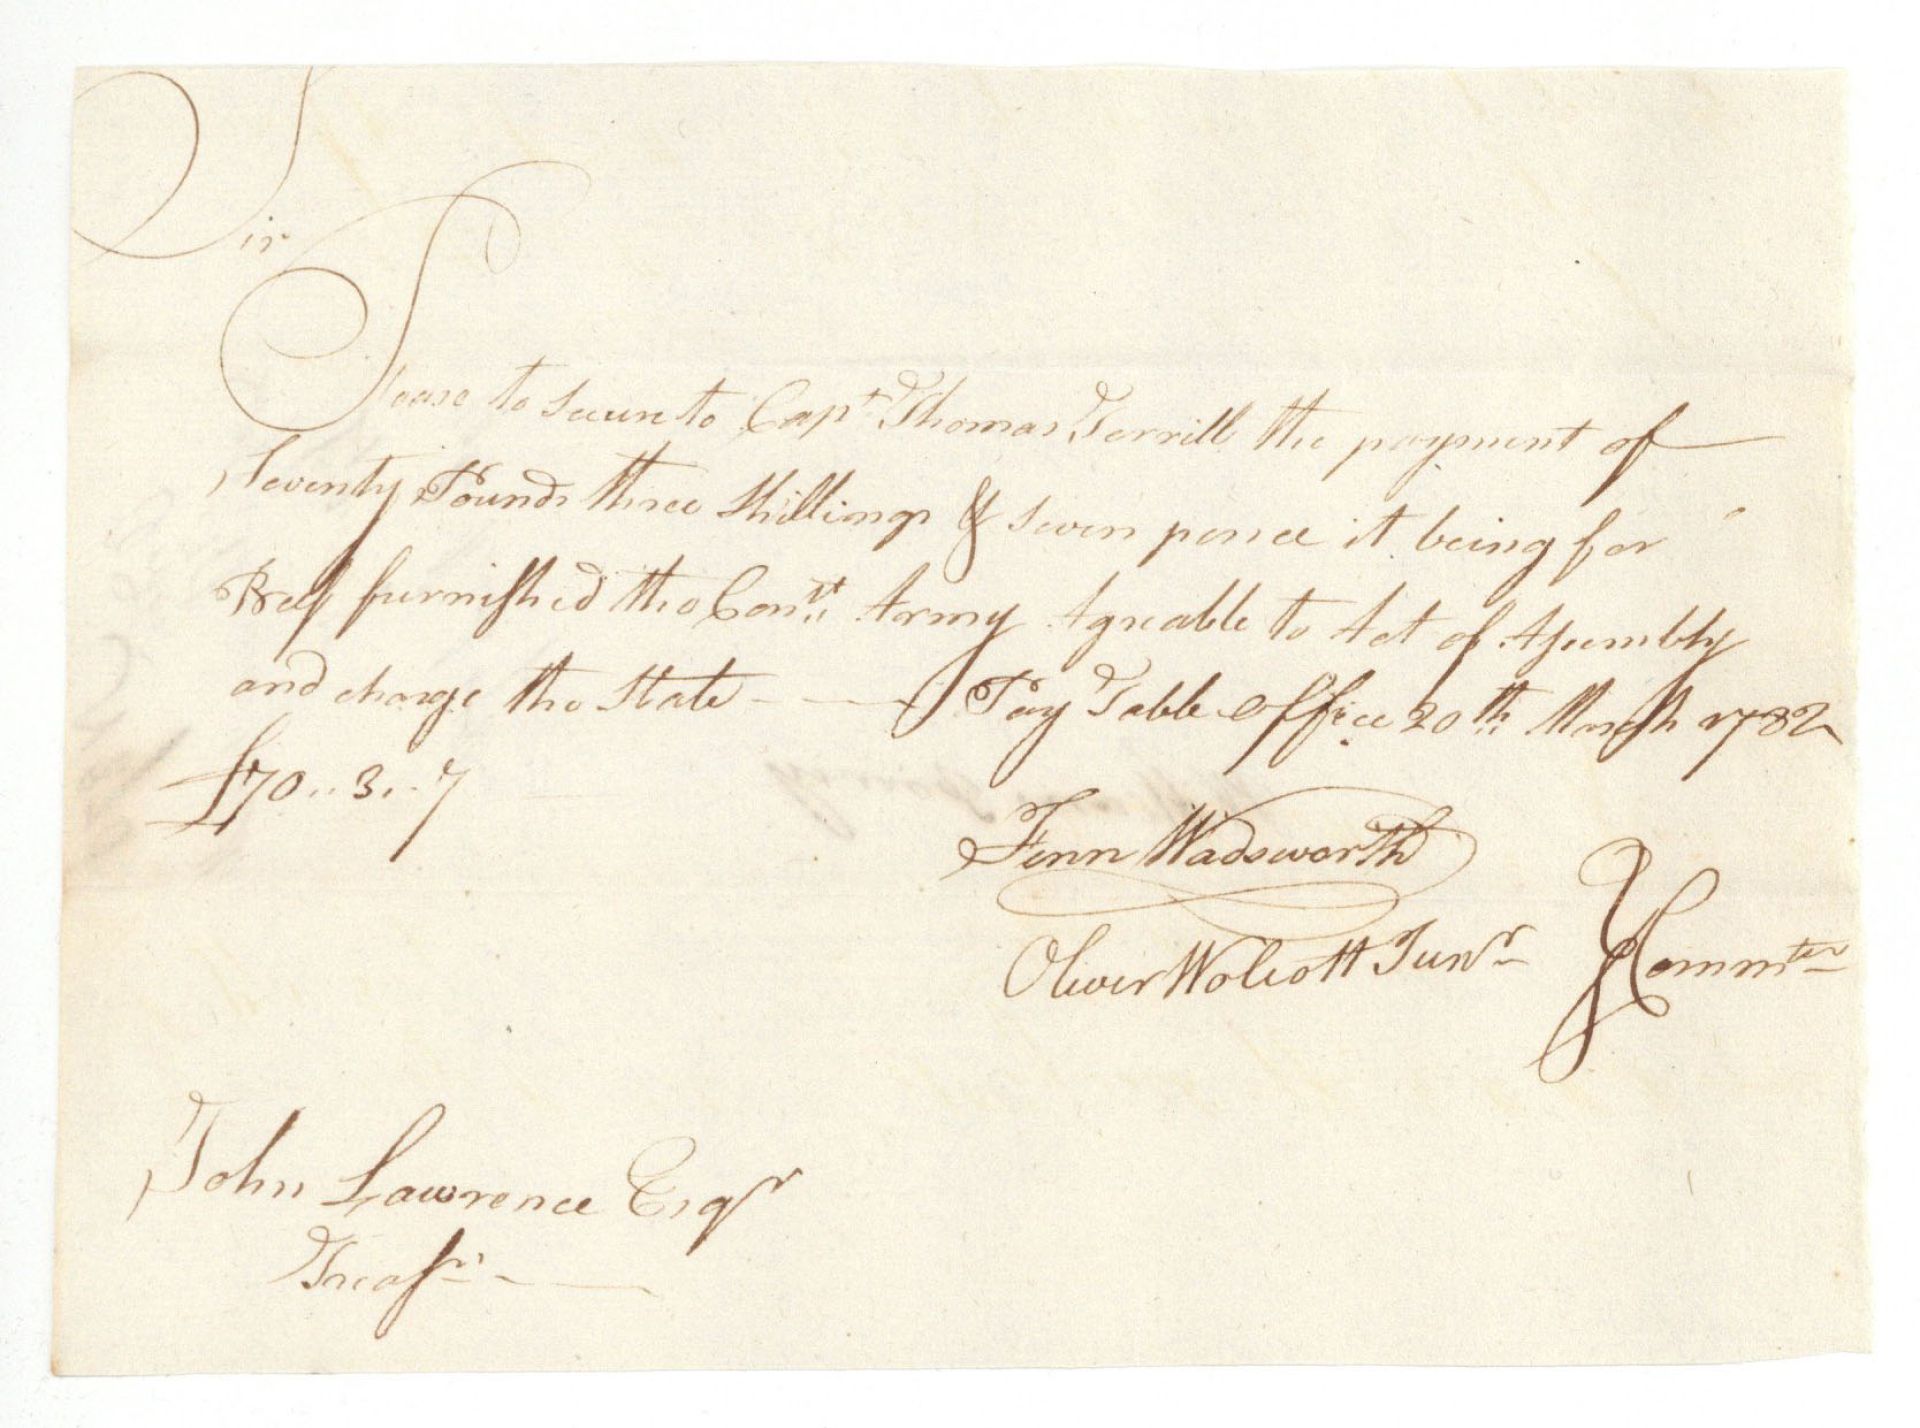 Sir
Please to secure to Capt Thomas Terrill the payment of
Seventy Pounds three Shillings & seven pence it being for
Beef furnished the Cont Army Agreable to Act of Assembly
and charge the State - - — Pay Table Office 20th March 1782
£70..3..7
Fenn Wadsworth
Oliver Wolcott Junr } Commtee
John Lawrence Esqr
Treasr